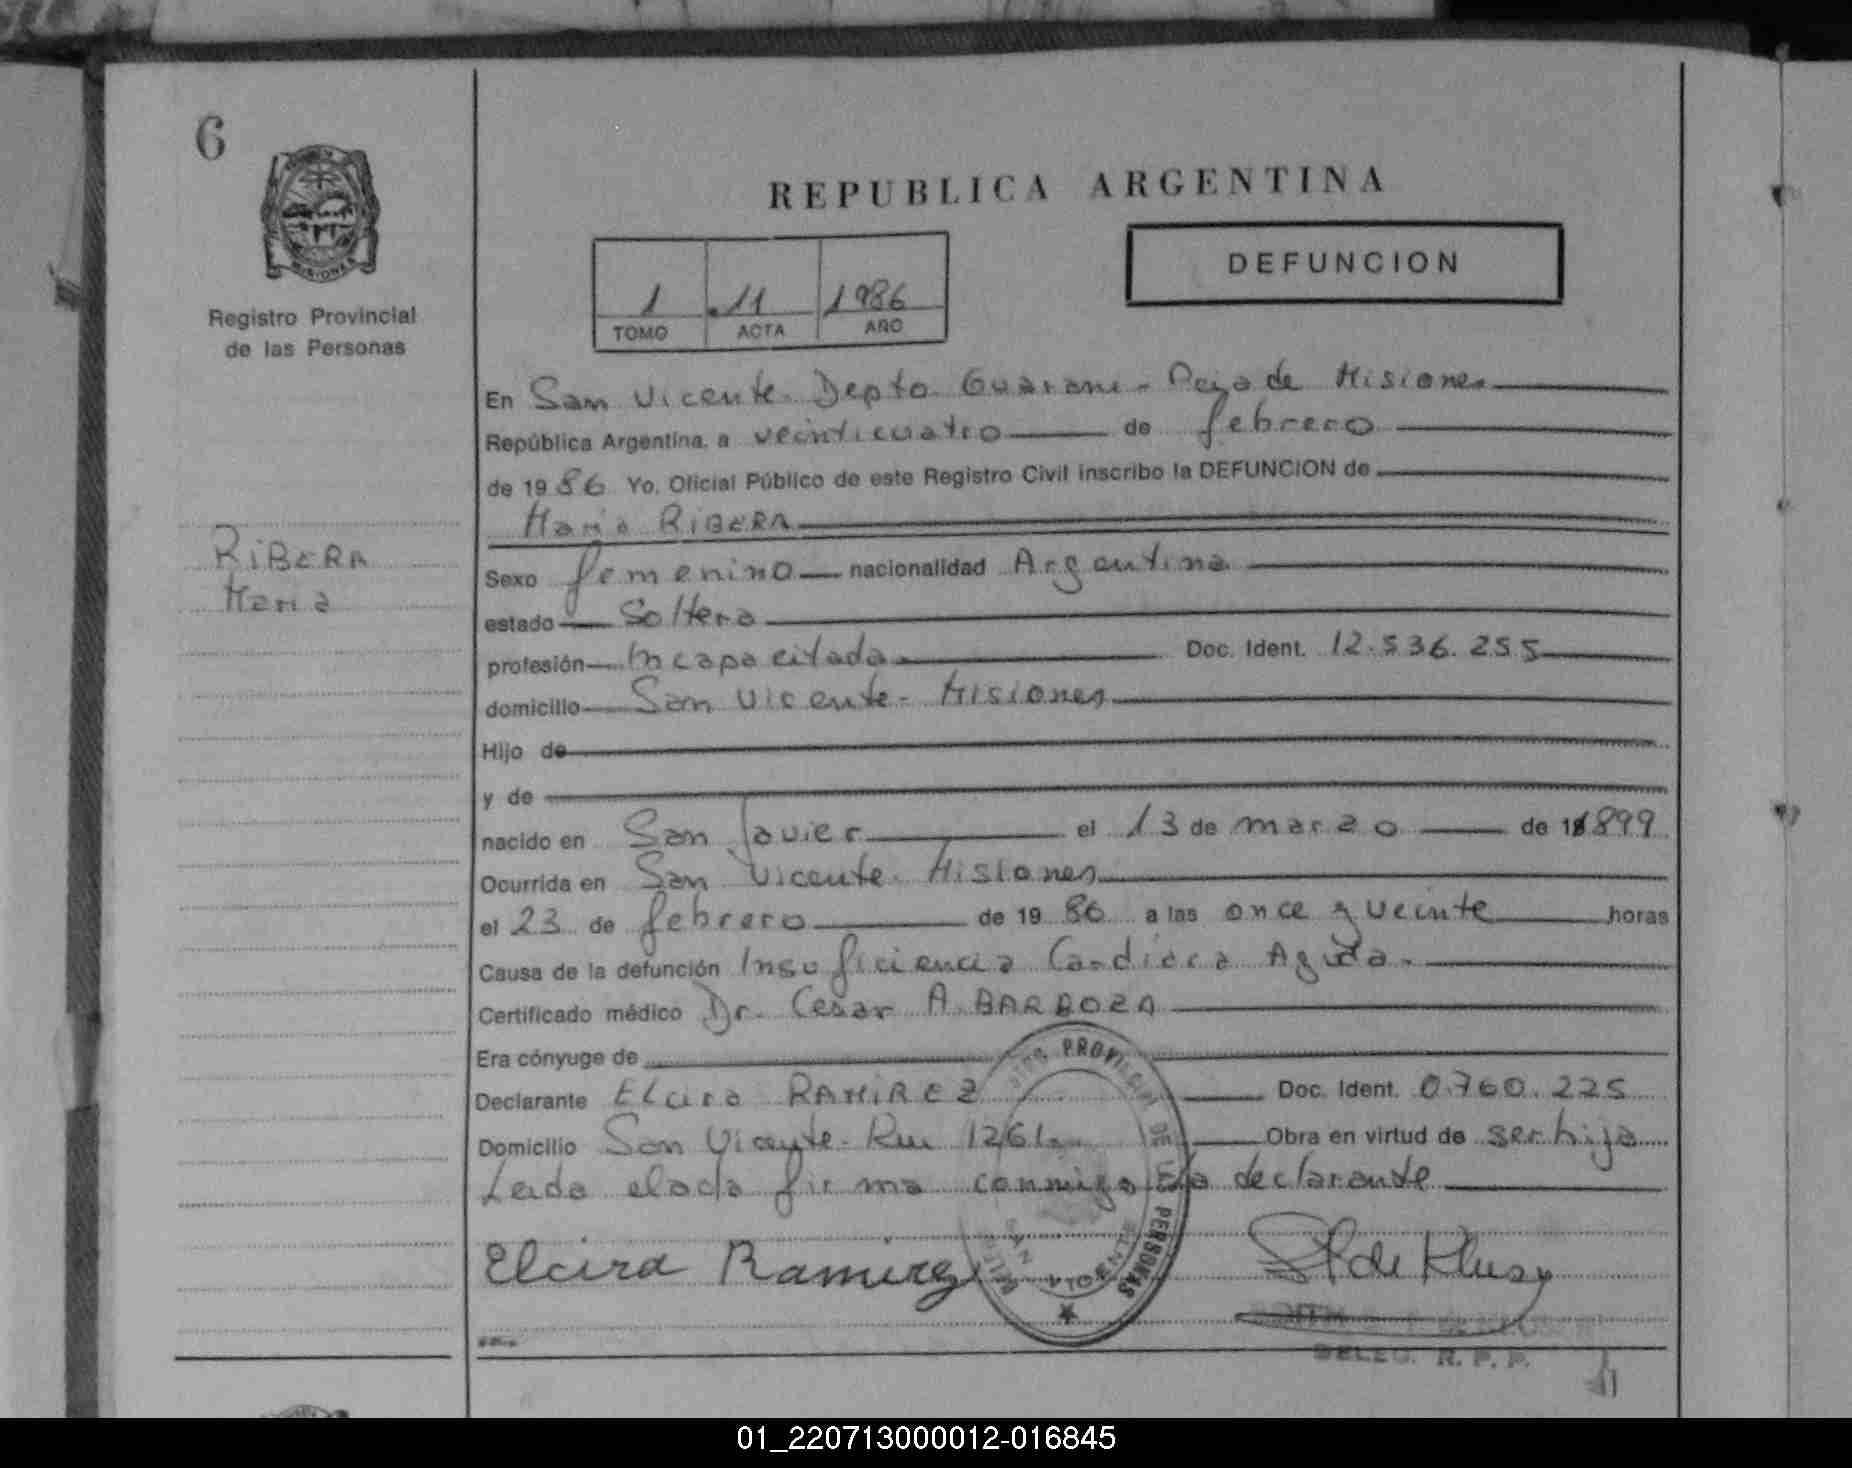 6
MISIONES
Registro Provincial
de las Personas
REPUBLICA ARGENTINA
1 11 1986
TOMO ACTA AÑO
DEFUNCION
RIBERA
Maria
En San Vicente. Depto. Guarani - Pcia de Misiones
República Argentina, a veinticuatro de febrero
de 1986 Yo, Oficial Público de este Registro Civil inscribo la DEFUNCION de
Maria RIBERA
Sexo femenino nacionalidad Argentina
estado Soltera
profesión Incapacitada Doc. Ident. 12.536.255
domicilio San Vicente - Misiones
Hijo de
y de
nacido en San Javier el 13 de marzo de 1899
Ocurrida en San Vicente - Misiones
el 23 de febrero de 1986 a las once y veinte horas
Causa de la defunción Insuficiencia Cardiaca Aguda.
Certificado médico Dr. Cesar A. BARBOZA
Era cónyuge de
Declarante Elcira RAMIREZ Doc. Ident. 0.760.225
Domicilio San Vicente - 1261 Obra en virtud de ser hija
Leida el acta firma conmigo la declarante
PROVINCIAL DE LAS PERSONAS
SAN VICENTE
Elcira Ramirez
DELEG. R. P. P.
01_220713000012-016845